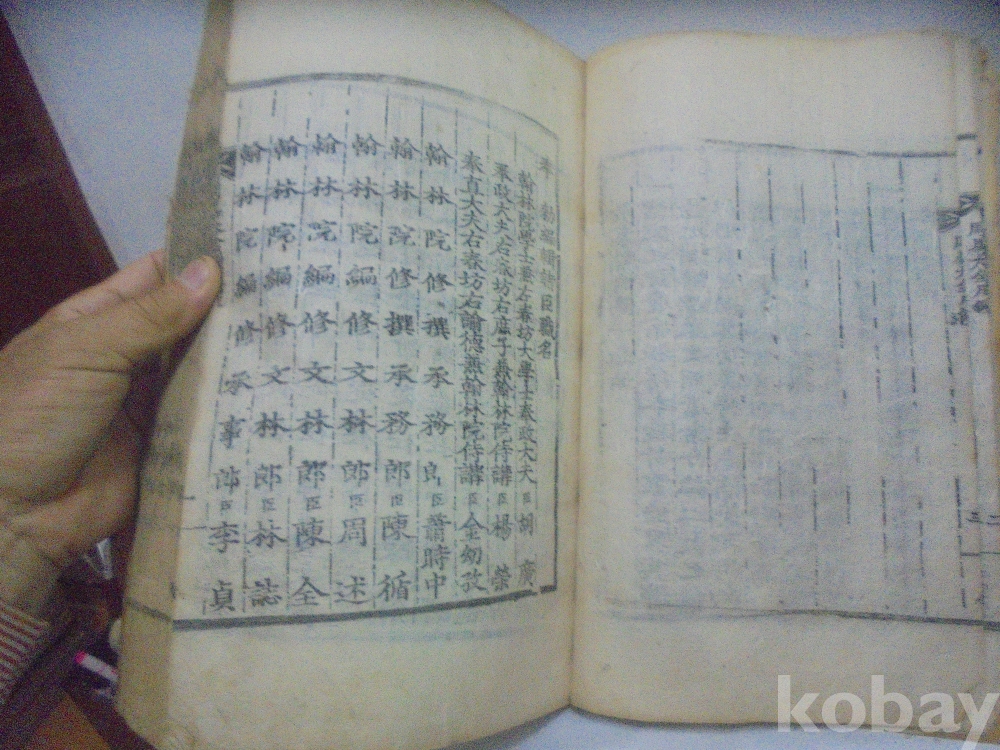 奉 勅纂修諸臣職名
翰林院學士兼左春坊大學士奉政大夫臣胡廣
奉政大夫右春坊右庶子兼翰林院侍講臣楊榮
奉直大夫右春坊右諭德兼翰林院侍講臣金幼孜
翰林院修撰承務郎臣蕭時中
翰林院修撰承務郎臣陳循
翰林院編修文林郎臣周述
翰林院編修文林郎臣陳全
翰林院編修文林郎臣林誌
翰林院編修承事郎臣李貞
kobay